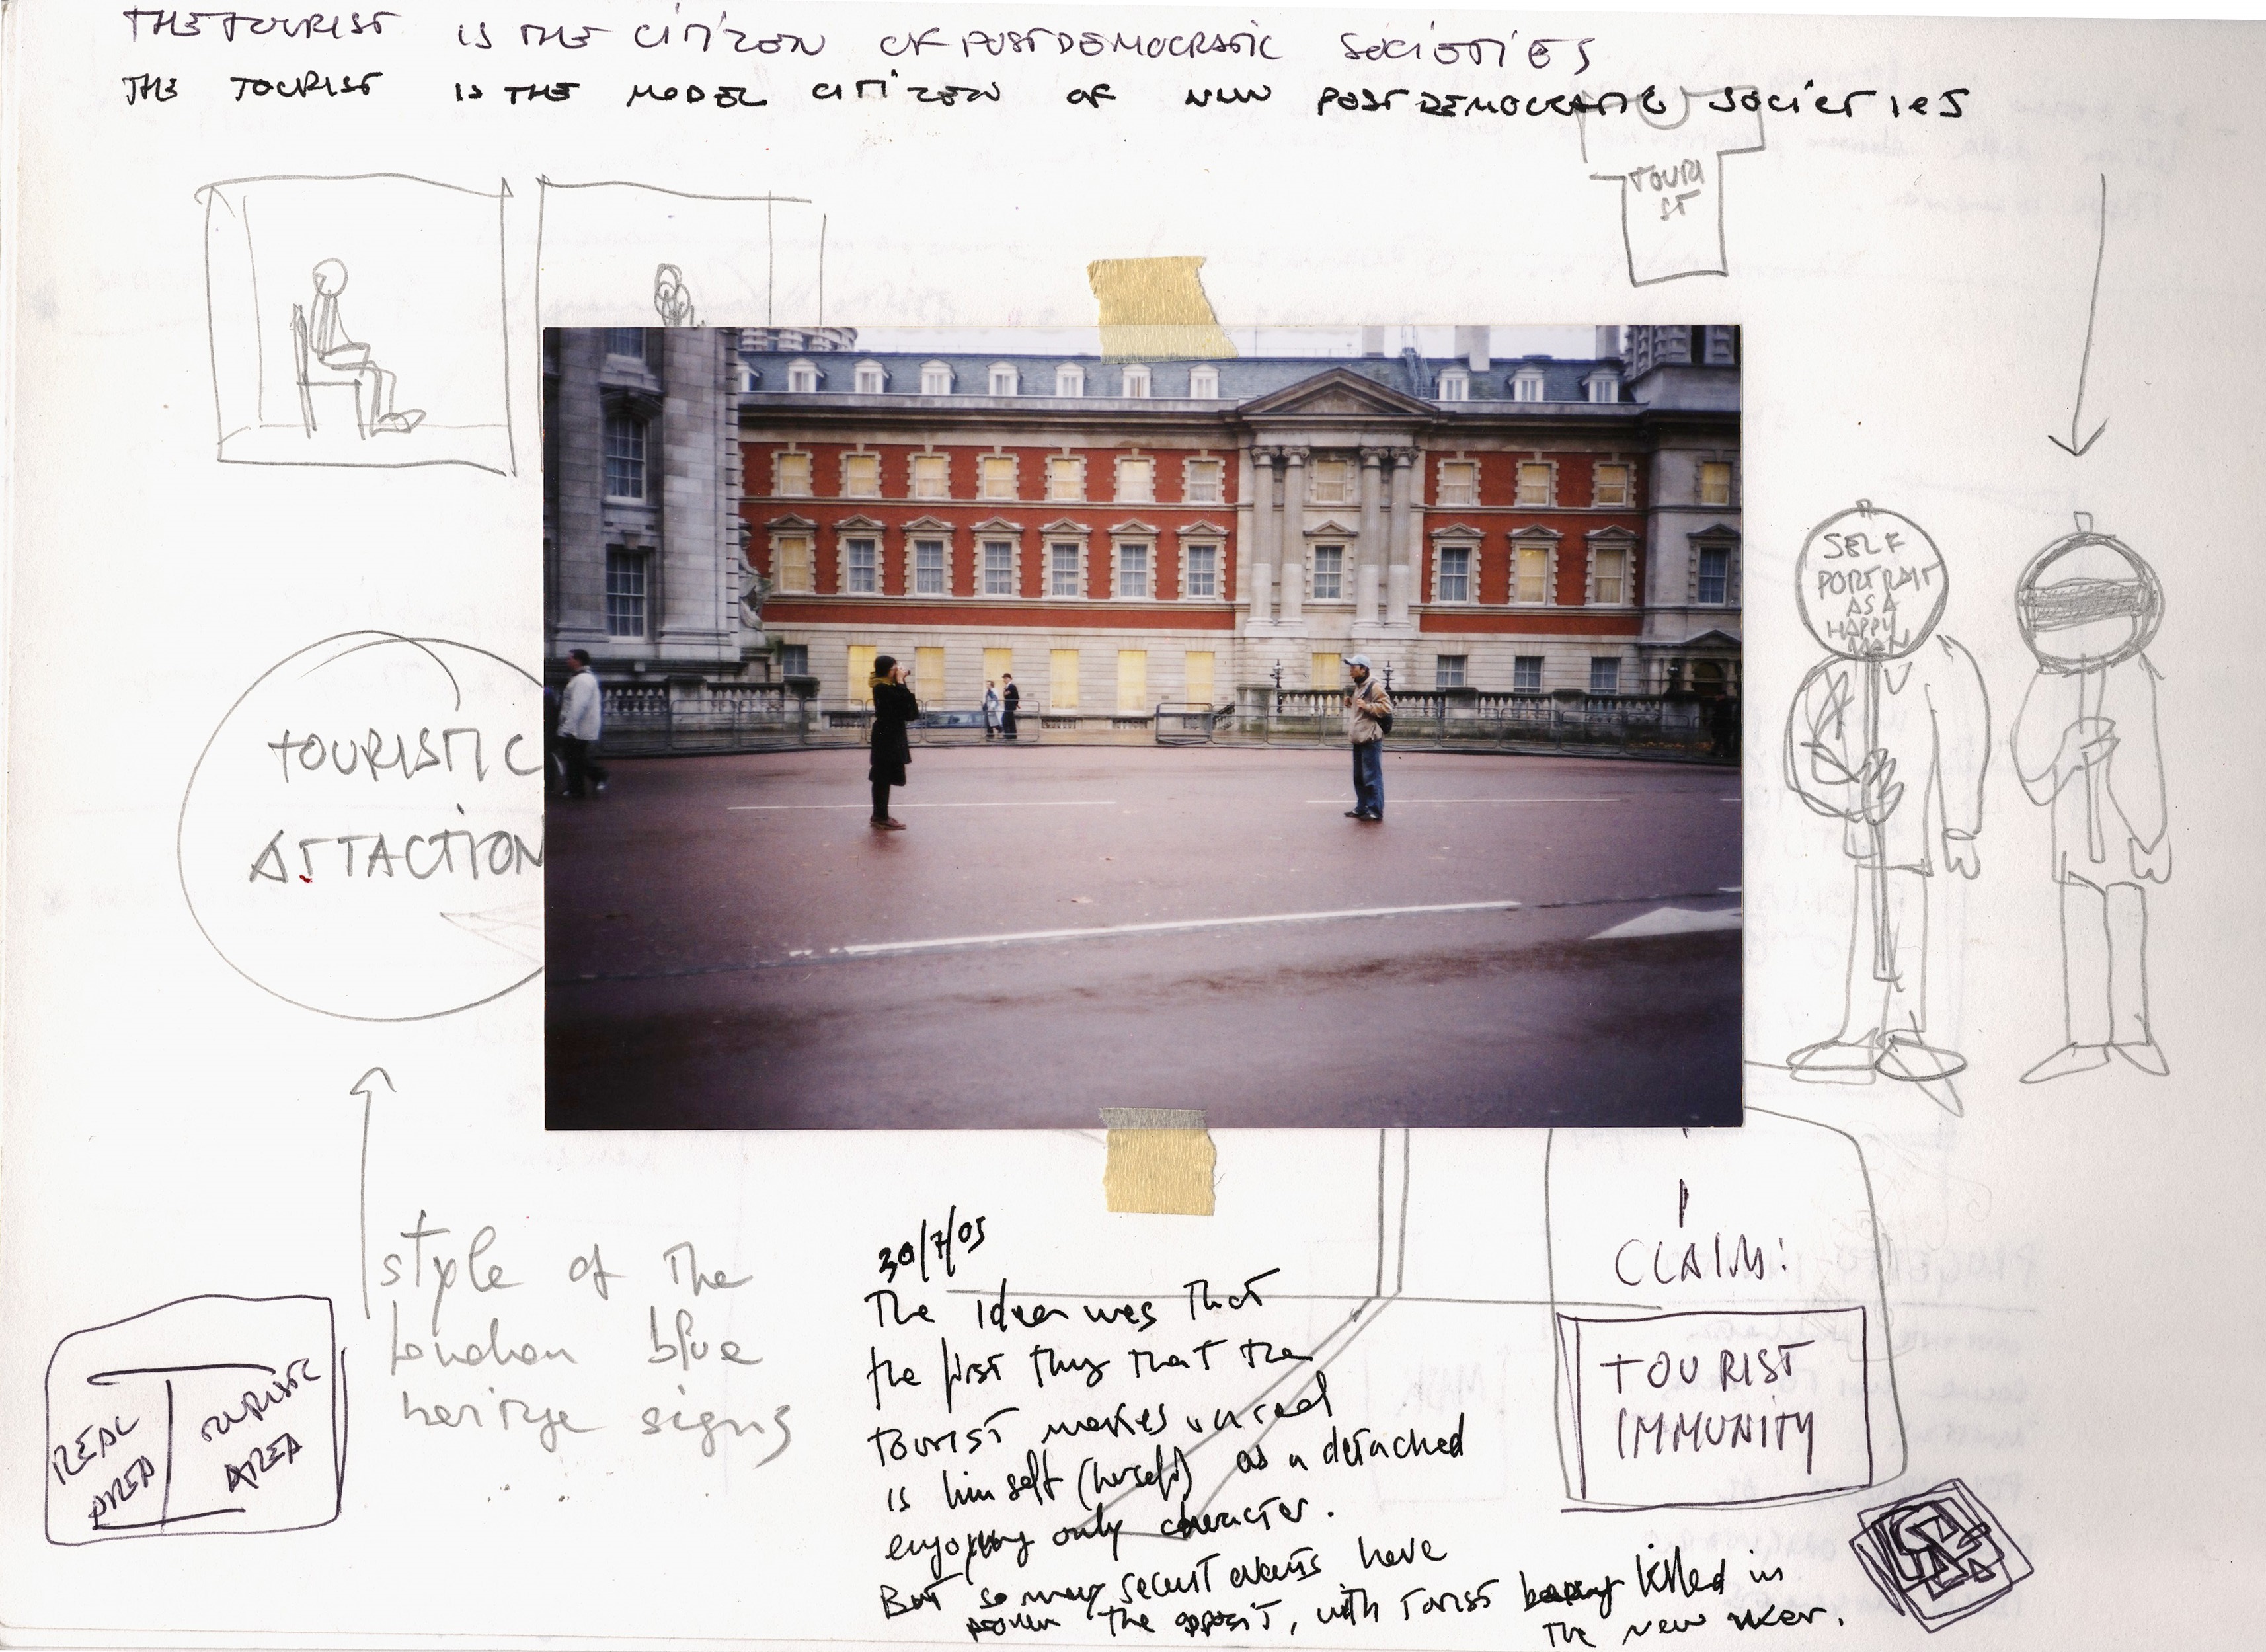 THE TOURIST IS THE CITIZEN OF POSTDEMOCRATIC SOCIETIES
THE TOURIST IS THE MODEL CITIZEN OF NEW POSTDEMOCRATIC SOCIETIES
TOURI
ST
SELF
PORTRAIT
AS A
HAPPY
MAN
TOURISTIC
ATTACTION
style of the
london blue
heritge signs
REAL
AREA
TOURISTIC
AREA
30/7/05
The idea was that
the first thing that the
tourist makes unreal
is himself (herself) as a detached
enjoying only character.
But so many recent events have
proven the opposit, with tourist being killed in
the new wars.
I
CLAIM:
TOURIST
IMMUNITY